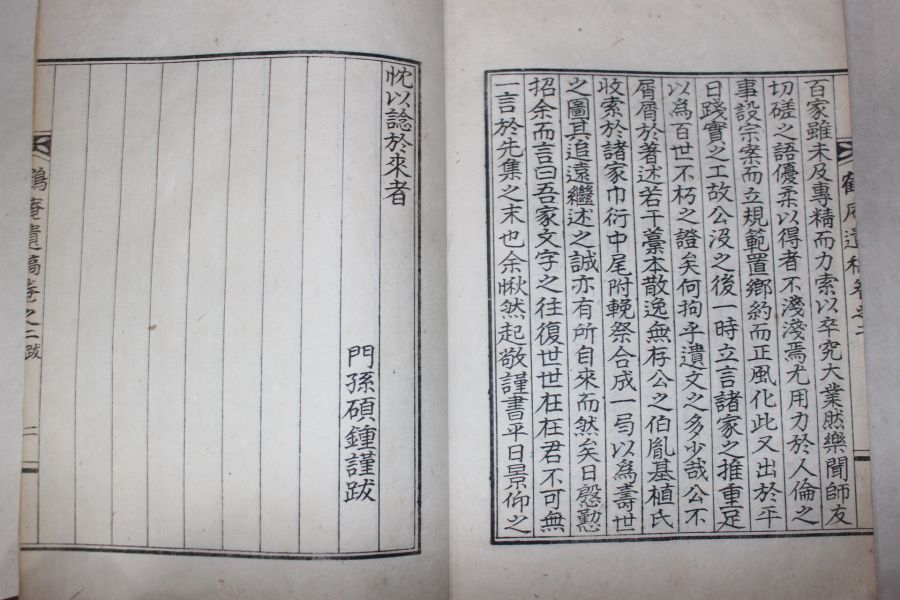 百家雖未及專精而力索以卒究大業然樂聞師友
切磋之語優柔以得者不淺淺焉尤用力於人倫之
事設宗案而立規範置鄉約而正風化此又出於平
日踐實之工故公沒之後一時立言諸家之推重足
以為百世不朽之證矣何拘乎遺文之多少哉公不
屑屑於著述若干藁本散逸無存公之伯胤基植氏
收索於諸家巾衍中尾附輓祭合成一局以為壽世
之圖其追遠繼述之誠亦有所自來而然矣日慇懃
招余而言曰吾家文字之往復世世在在君不可無
一言於先集之末也余愀然起敬謹書平日景仰之
忱以諗於來者
門孫碩鍾謹跋
鶴庵遺稿卷之二 跋 二